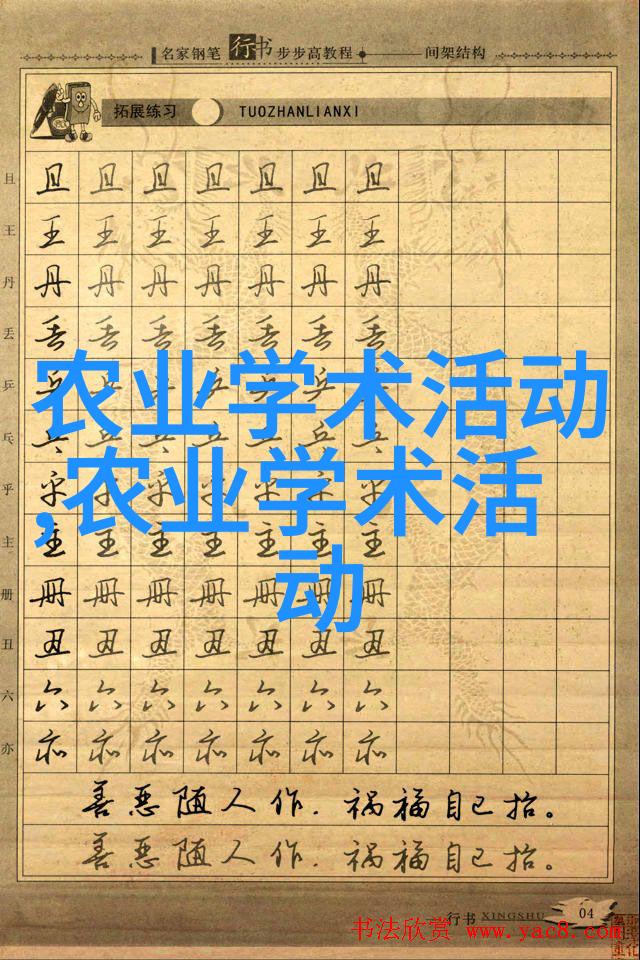 名家钢笔行书步步高教程 间架结构
拓展练习 TUOZHANLIANXI
且 且 且 且 且 且 且 且
王 王 王 王 王 王 王 王
丹 丹 丹 丹 丹 丹 丹 丹
丢 丢 丢 丢 丢 丢 丢 丢
农业学术活动
乒 乒 乒 乒 乒 乒 乒 乒
乓 乓 乓 乓 乓 乓 乓 乓
,农业学术活
乎 乎 乎 乎 乎 乎 乎 乎
主 主 主 主 主 主 主 主
动
册 册 册 册 册 册 册 册
丑 丑 丑 丑 丑 丑 丑 丑
六 六 六 六 六 六 六 六
亦 亦 亦 亦 亦 亦 亦 亦
善恶随人作,祸福自己招。
善恶随人作,祸福自己招。
行书 XINGSHU 04
书法欣赏 www.yac8.com